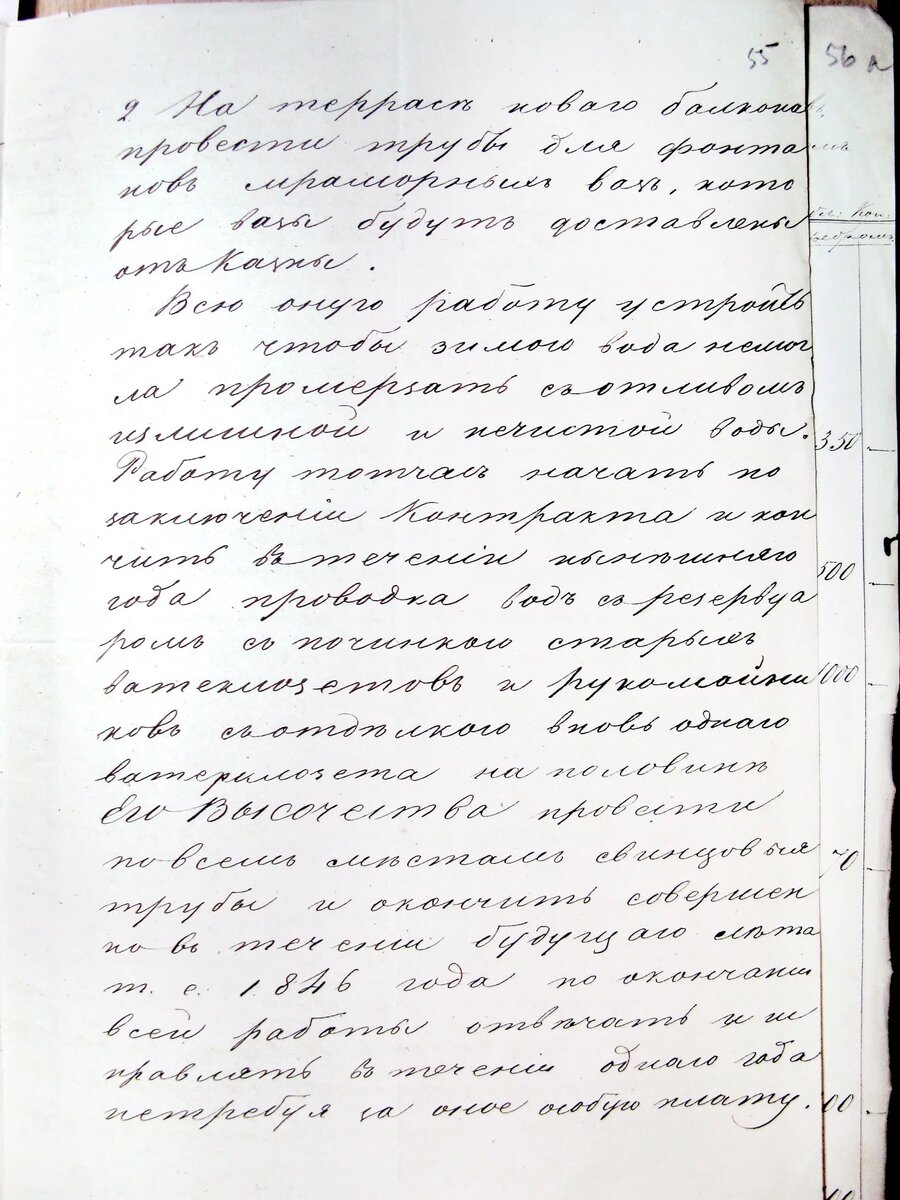 55
56
2 На террасѣ новаго балкона
провести трубы для фонта
новъ мраморныхъ вазъ, кото
рые вазы будутъ доставлены
отъ Казны.
Всю оную работу устроить
такъ чтобы зимою вода немог
ла промерзать съ отливомъ
излишной и нечистой воды.
Работу тотчасъ начать по
заключеніи Контракта и кон
чить въ теченіи нынѣшняго
года проводка водъ съ резервуа
ромъ съ починкою старыхъ
ватеклозетовъ и рукомойни
ковъ съ отдѣлкою вновь однаго
ватерклозета на половинѣ
Его Высочества провести
по всемъ мѣстамъ свинцовыя
трубы и окончить совершен
но въ теченіи будущаго лѣта
т. е. 1846 года по окончаніи
всей работы отвѣчать и ис
правлять въ теченіи однаго года
нетребуя за оное особую плату.
Коп.
350
500
1000
70
00